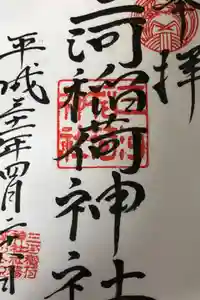 奉拝
三河稲荷神社
平成三十一年四月